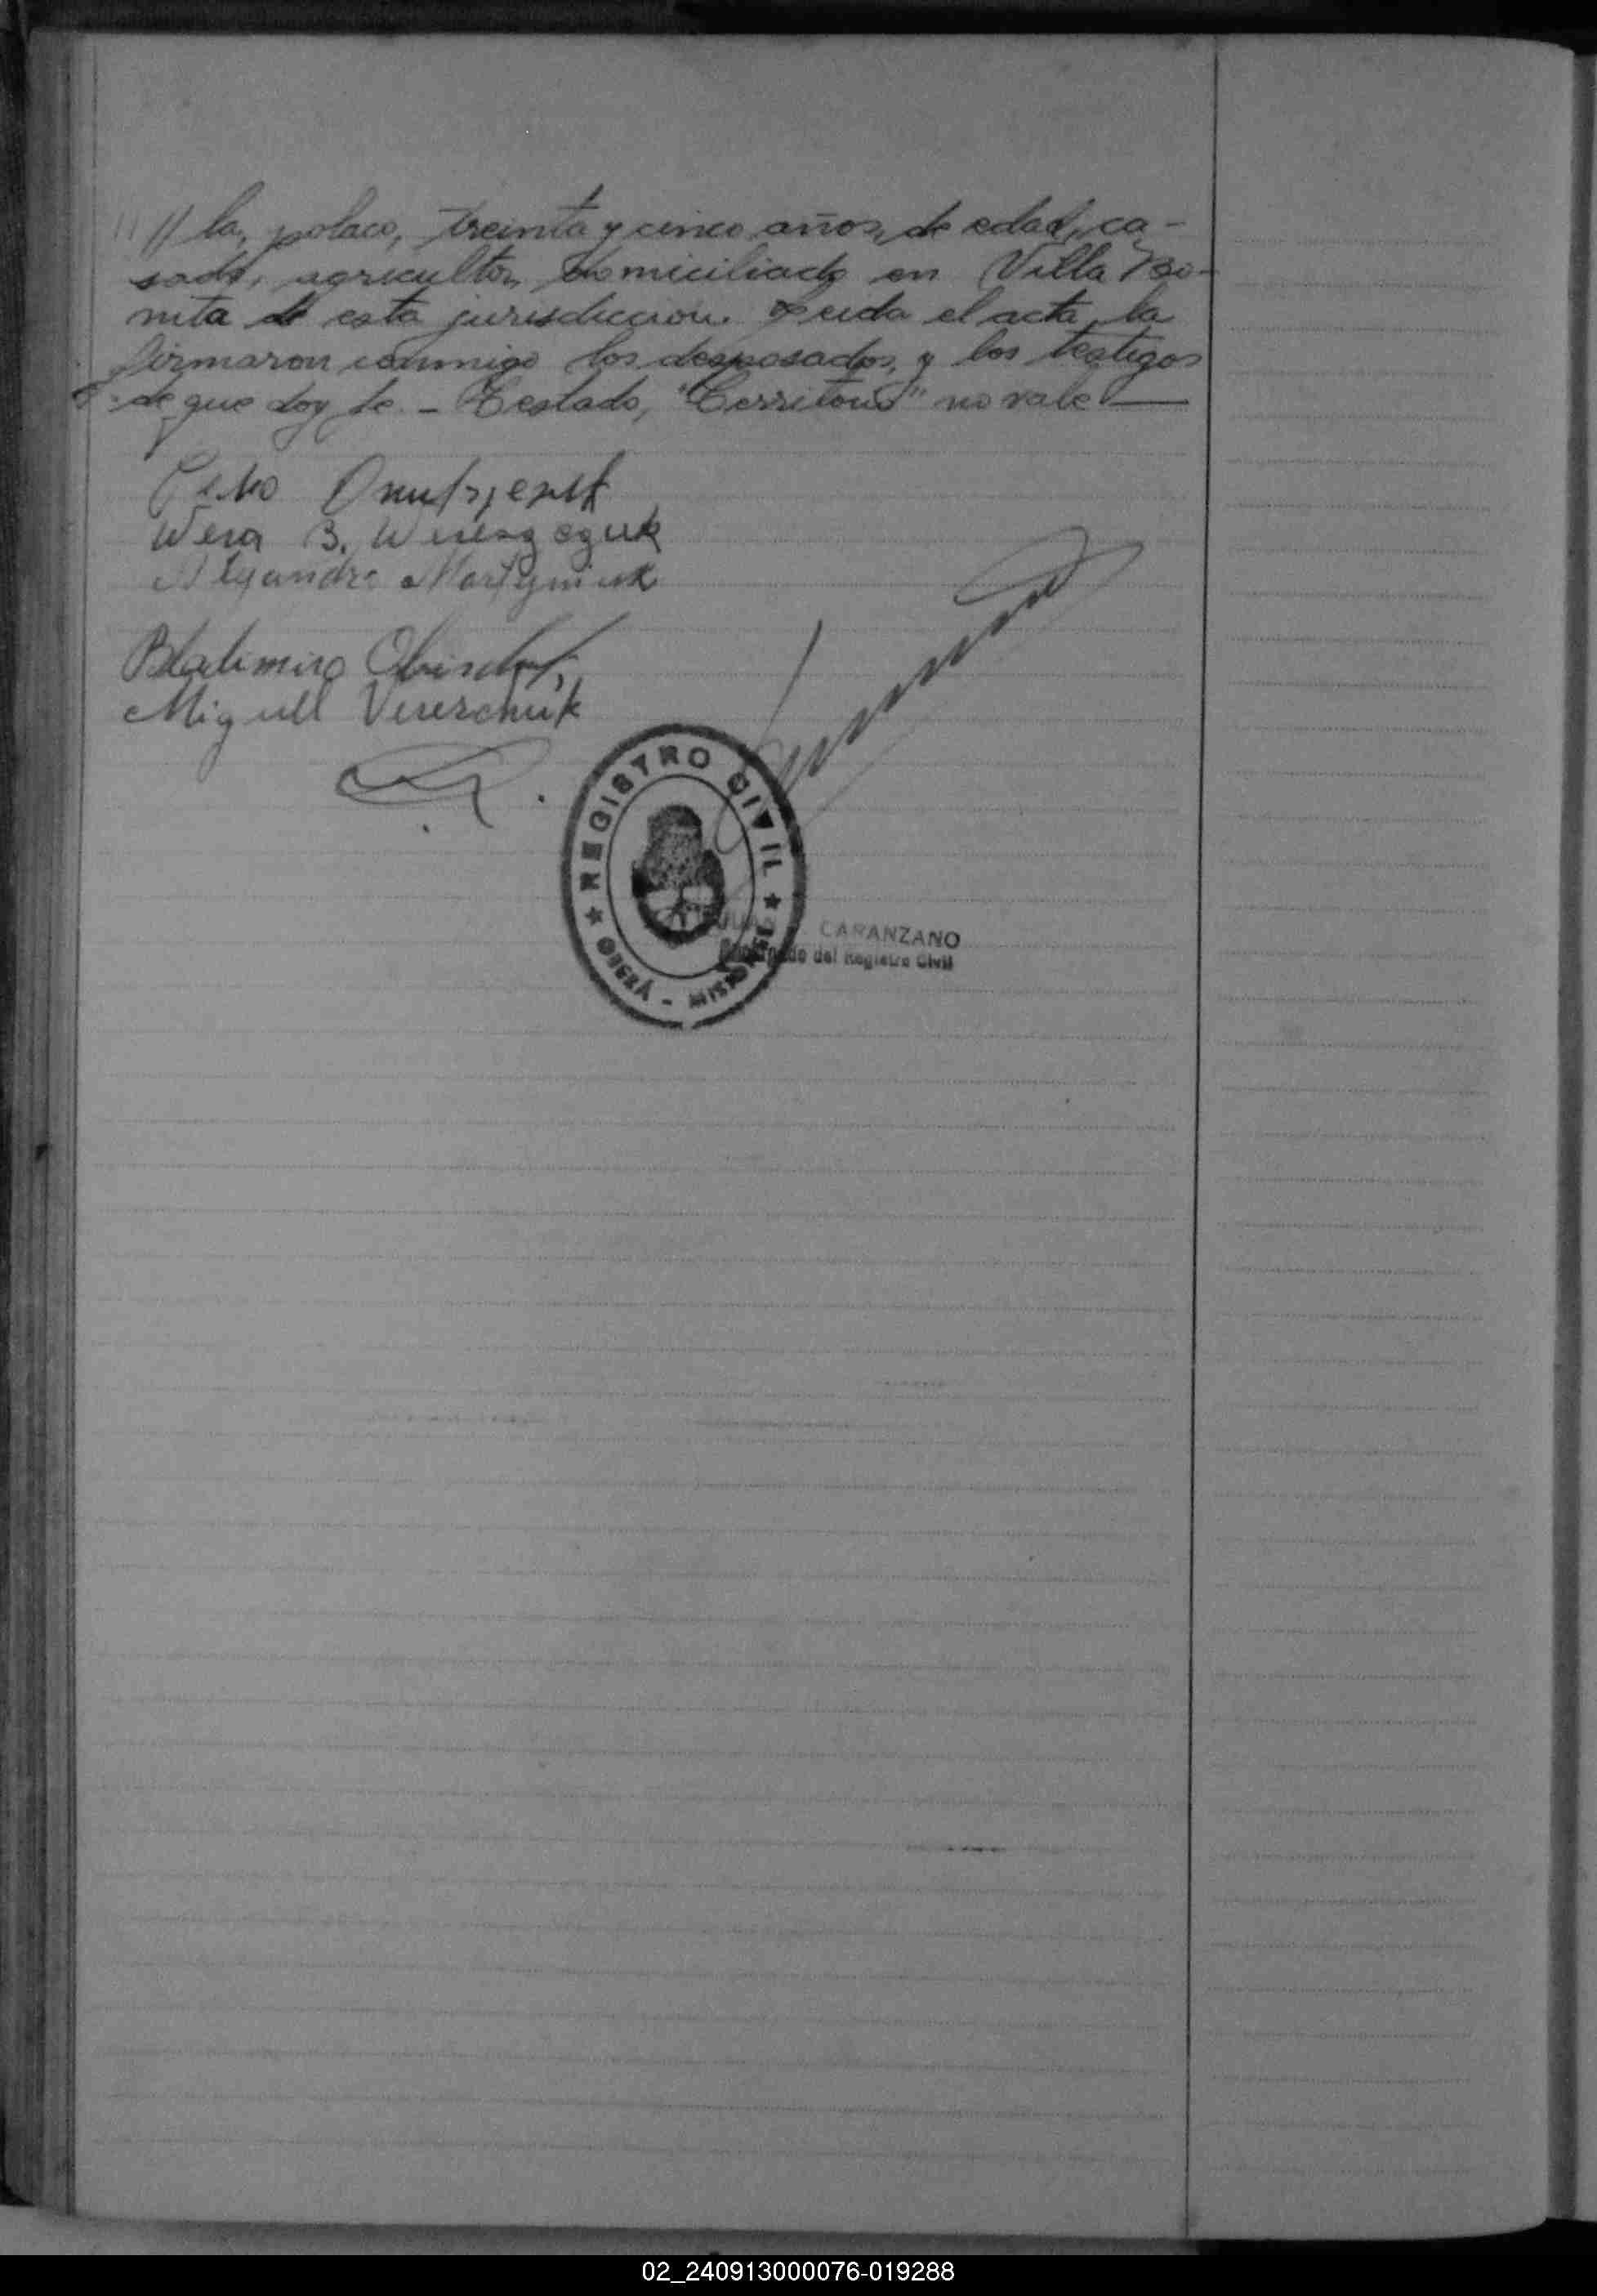 // la, polaco, treinta y cinco años, de edad, ca-
sado, agricultor, domiciliado en Villa Bo-
nita de esta jurisdiccion. Leida el acta, la
firmaron conmigo los desposados, y los testigos
de que doy fe. - Testado, "Cerritous" no vale —
Wera B. Wereszczuk
Alejandro Martyniuk
Bladimiro
Miguel Vereschuk
REGISTRO CIVIL
OBERÁ - MISIONES
CARANZANO
Encargado del Registro Civil
02_240913000076-019288